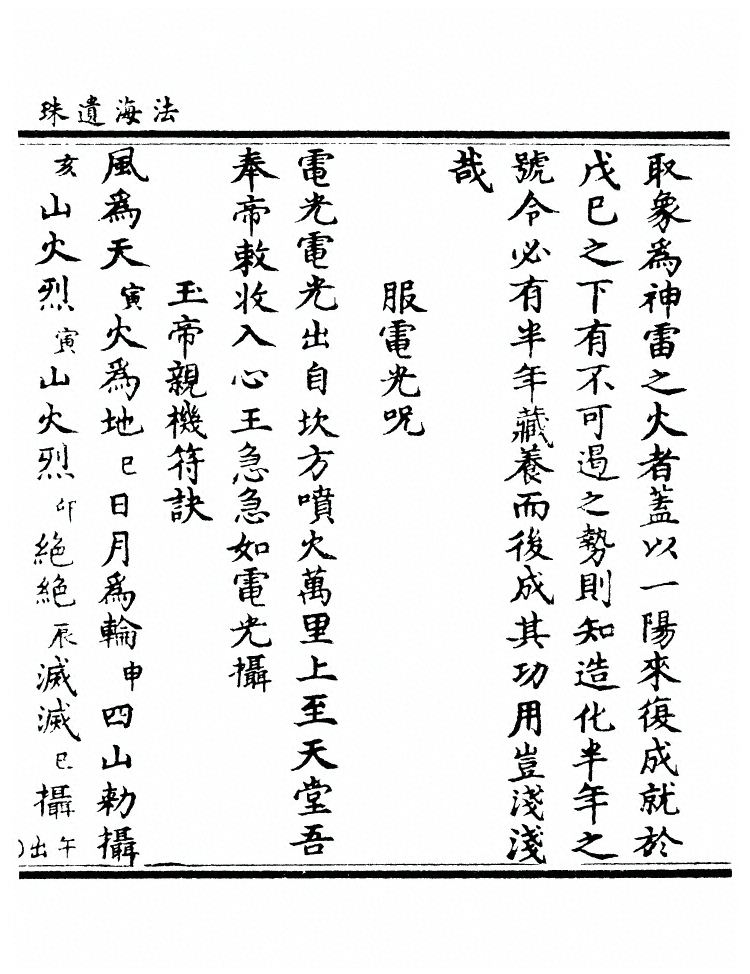 法海遺珠
取象爲神雷之火者蓋以一陽來復成就於
戊巳之下有不可遏之勢則知造化半年之
號令必有半年藏養而後成其功用豈淺淺
哉
服電光呪
電光電光出自坎方噴火萬里上至天堂吾
奉帝敕收入心王急急如電光攝
玉帝親機符訣
風爲天寅火爲地巳日月爲輪申四山勑攝
亥山火烈寅山火烈卯絕絕辰滅滅巳攝午出